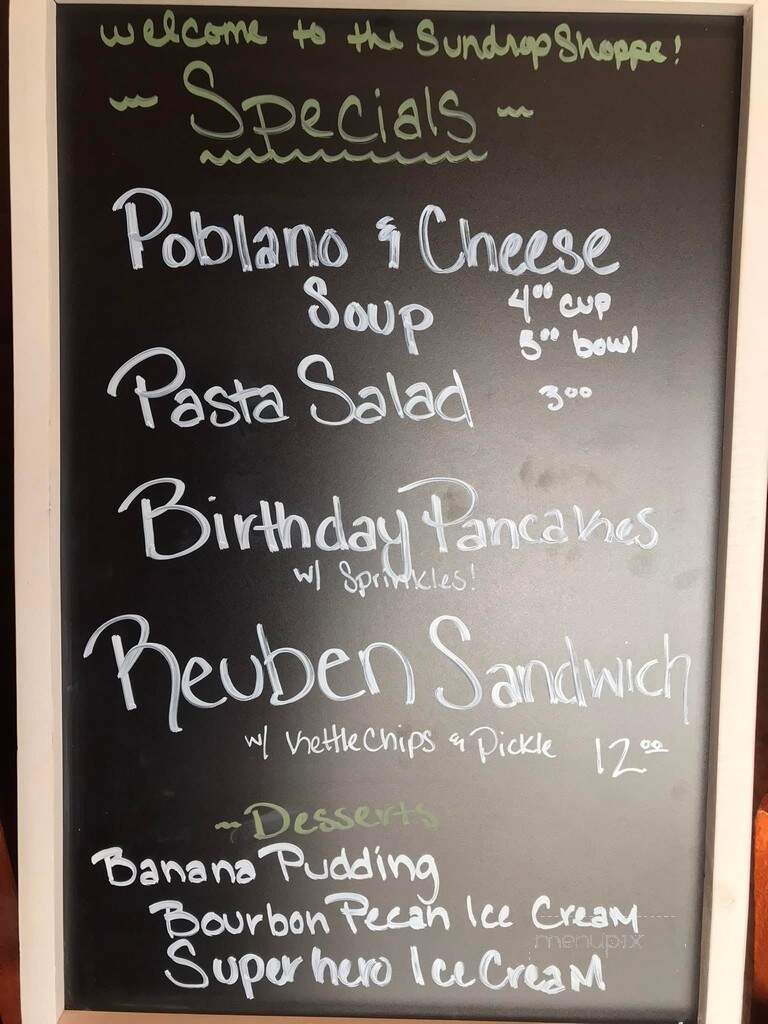 Welcome to the Sundrop Shoppe!
~ Specials ~
Poblano & Cheese
Soup 4.00 cup
5.00 bowl
Pasta Salad 3.00
Birthday Pancakes
w/ Sprinkles!
Reuben Sandwich
w/ Kettle Chips & Pickle 12.00
~ Desserts
Banana Pudding
Bourbon Pecan Ice Cream
menupix
Superhero Ice Cream